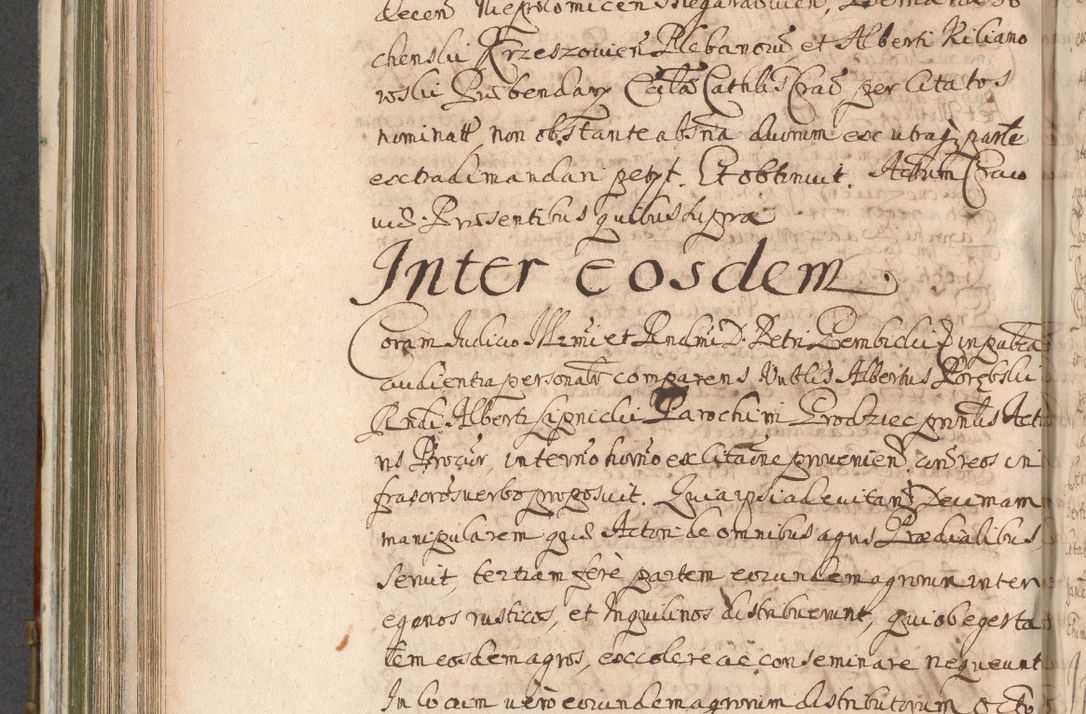 chenski Krzeszovien̄ Plebanorū et Alberti Kiliano
roski Præbendary Eccl̄a Cathlis Crac̄ per citatos
nominatt non obstante absn̄a duorum ex utraq parte
extradi mandari petyt. Et obtinuit. Actum Craco
viæ. Præsentibus quibus supra
Inter Eosdem.
Coram Iudicio Illr̄mi et Rndmi D. Petri Gembicki in publica
audientia personalr comparens Nobilis Albertus Porębski
Rndi Alberti Lipnicki Parochi in Grodziec prin̄lis Acto
ris Procūr, in termo hor̄no ex citaōne provenien̄ con̄ reos in
frascrōs verbo proposuit. Quia ipsi ad evitan̄ Decimam
manipularem quæ Actori de omnibus agris Prædialibus,
servit, tertiam ferè partem eorundem agrorum inter
egenos rusticos, et Inquilinos distribuerunt, qui ob egesta
tem eosdem agros, excolere ac conseminare nequeunt
In locum verò eorundem agrorum distributorum